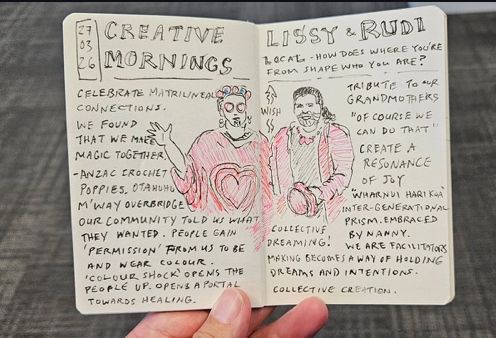 27
03
26
CREATIVE
MORNINGS
CELEBRATE MATRILINEAL
CONNECTIONS.
WE FOUND
THAT WE MAKE
MAGIC TOGETHER
-ANZAC CROCHET
POPPIES, OTAHUHU
M'WAY OVERBRIDGE
OUR COMMUNITY TOLD US WHAT
THEY WANTED. PEOPLE GAIN
'PERMISSION' FROM US TO BE
AND WEAR COLOUR.
'COLOUR SHOCK' OPENS THE
PEOPLE UP. OPENS A PORTAL
TOWARDS HEALING.
LISSY & RUDI
LOCAL - HOW DOES WHERE YOU'RE
FROM SHAPE WHO YOU ARE?
WISH
TRIBUTE TO OUR
GRANDMOTHERS
"OF COURSE WE
CAN DO THAT"
CREATE A
RESONANCE
OF JOY
"WHARNUI HARI KOA"
INTER-GENERATIONAL
PRISM. EMBRACED
BY NANNY.
WE ARE FACILITATORS
COLLECTIVE
DREAMING!
MAKING BECOMES A WAY OF HOLDING
DREAMS AND INTENTIONS.
COLLECTIVE CREATION.